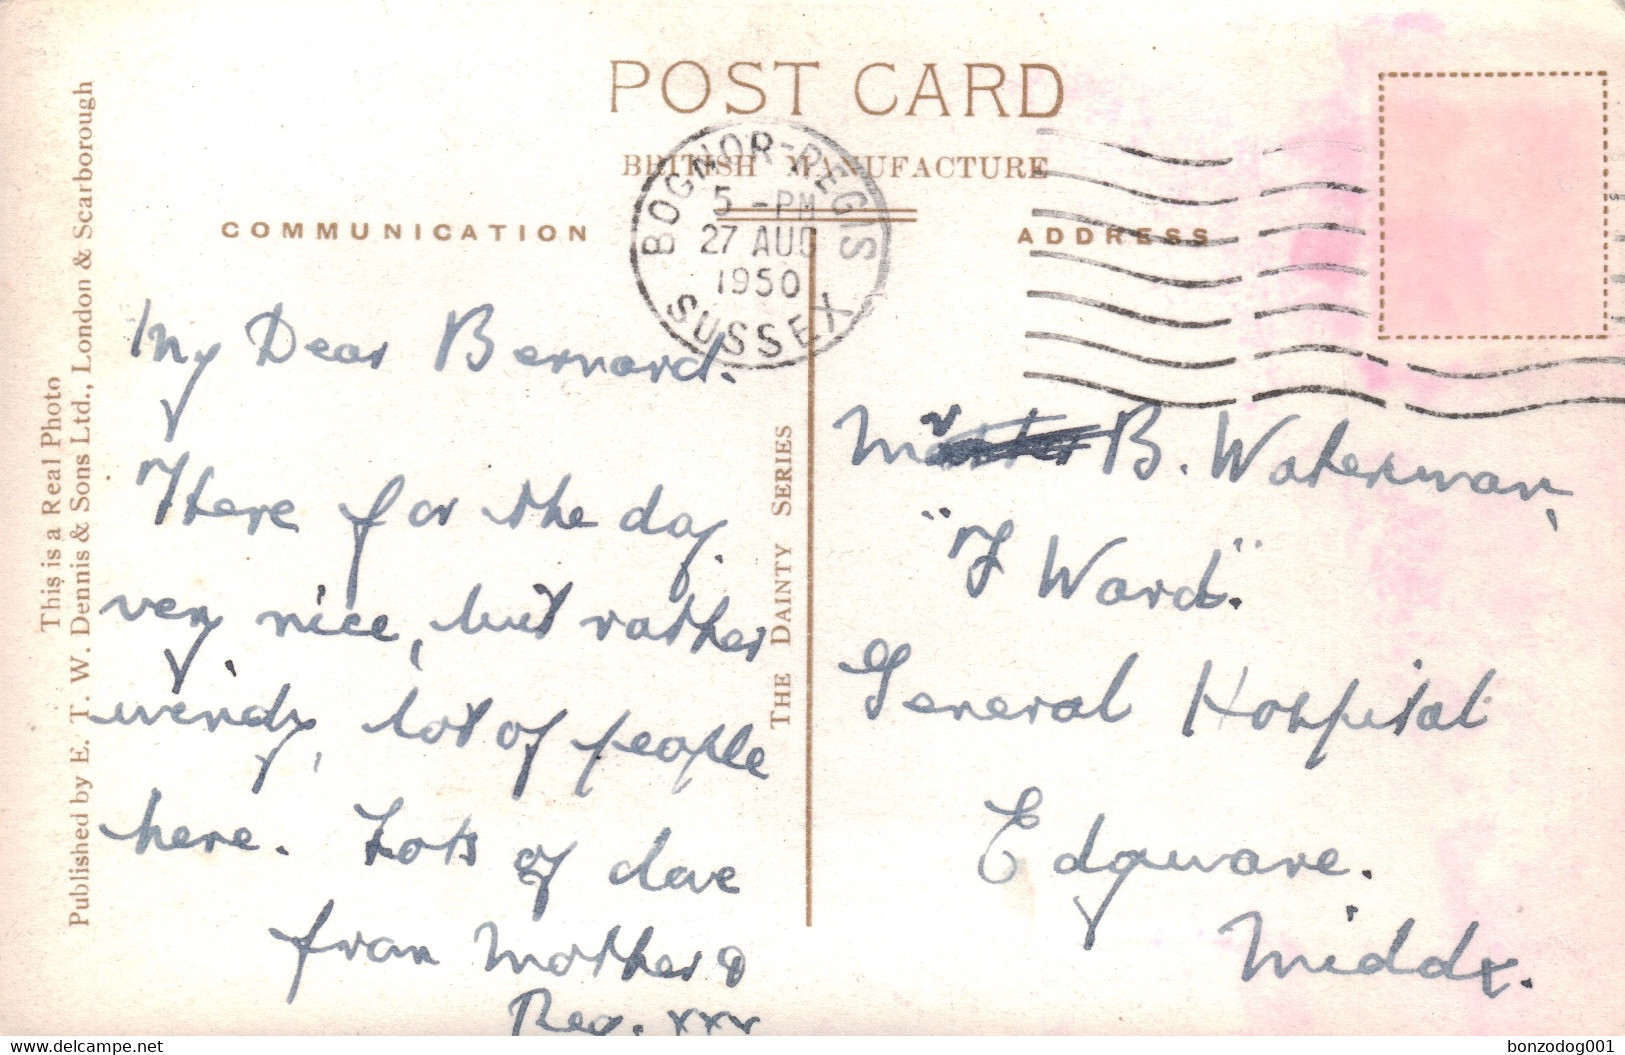 POST CARD
BRITISH MANUFACTURE
COMMUNICATION
ADDRESS
BOGNOR-REGIS
5 - PM
27 AUG
1950
SUSSEX
This is a Real Photo
Published by E. T. W. Dennis & Sons Ltd., London & Scarborough
THE DAINTY SERIES
My Dear Bernard.
Here for the day.
very nice, but rather
windy, lot of people
here. Lots of love
from Mother &
Reg. xxx
Mr B. Waterman,
"F Ward".
General Hospital
Edgware.
Middx.
delcampe.net
bonzodog001